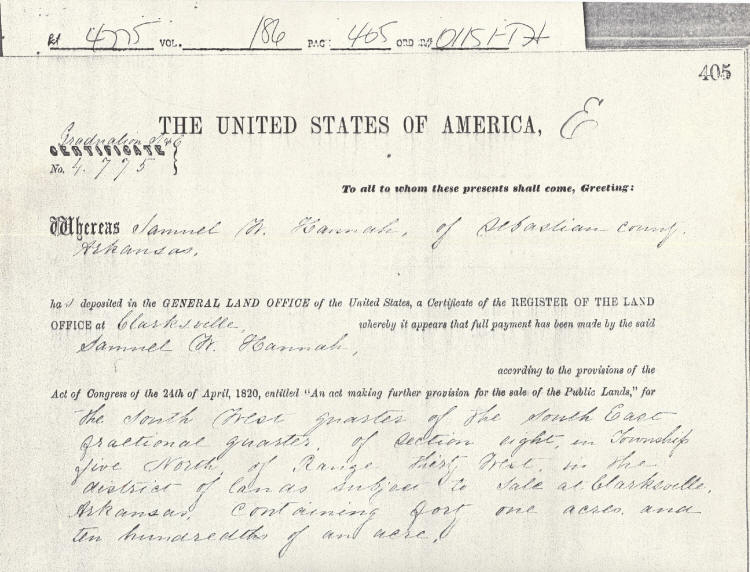 4775 VOL. 186 PAG: 405 ORD
405
THE UNITED STATES OF AMERICA, E
Graduation
CERTIFICATE
No. 4.775
To all to whom these presents shall come, Greeting:
Whereas Samuel W. Hannah, of Sebastian county.
Arkansas,
has deposited in the GENERAL LAND OFFICE of the United States, a Certificate of the REGISTER OF THE LAND
OFFICE at Clarksville, whereby it appears that full payment has been made by the said
Samuel W. Hannah,
according to the provisions of the
Act of Congress of the 24th of April, 1820, entitled "An act making further provision for the sale of the Public Lands," for
the South West quarter of the South East
fractional quarter, of section eight, in Township
five North, of Range thirty West, in the
district of lands subject to sale at Clarksville,
Arkansas, containing forty one acres and
ten hundredths of an acre,